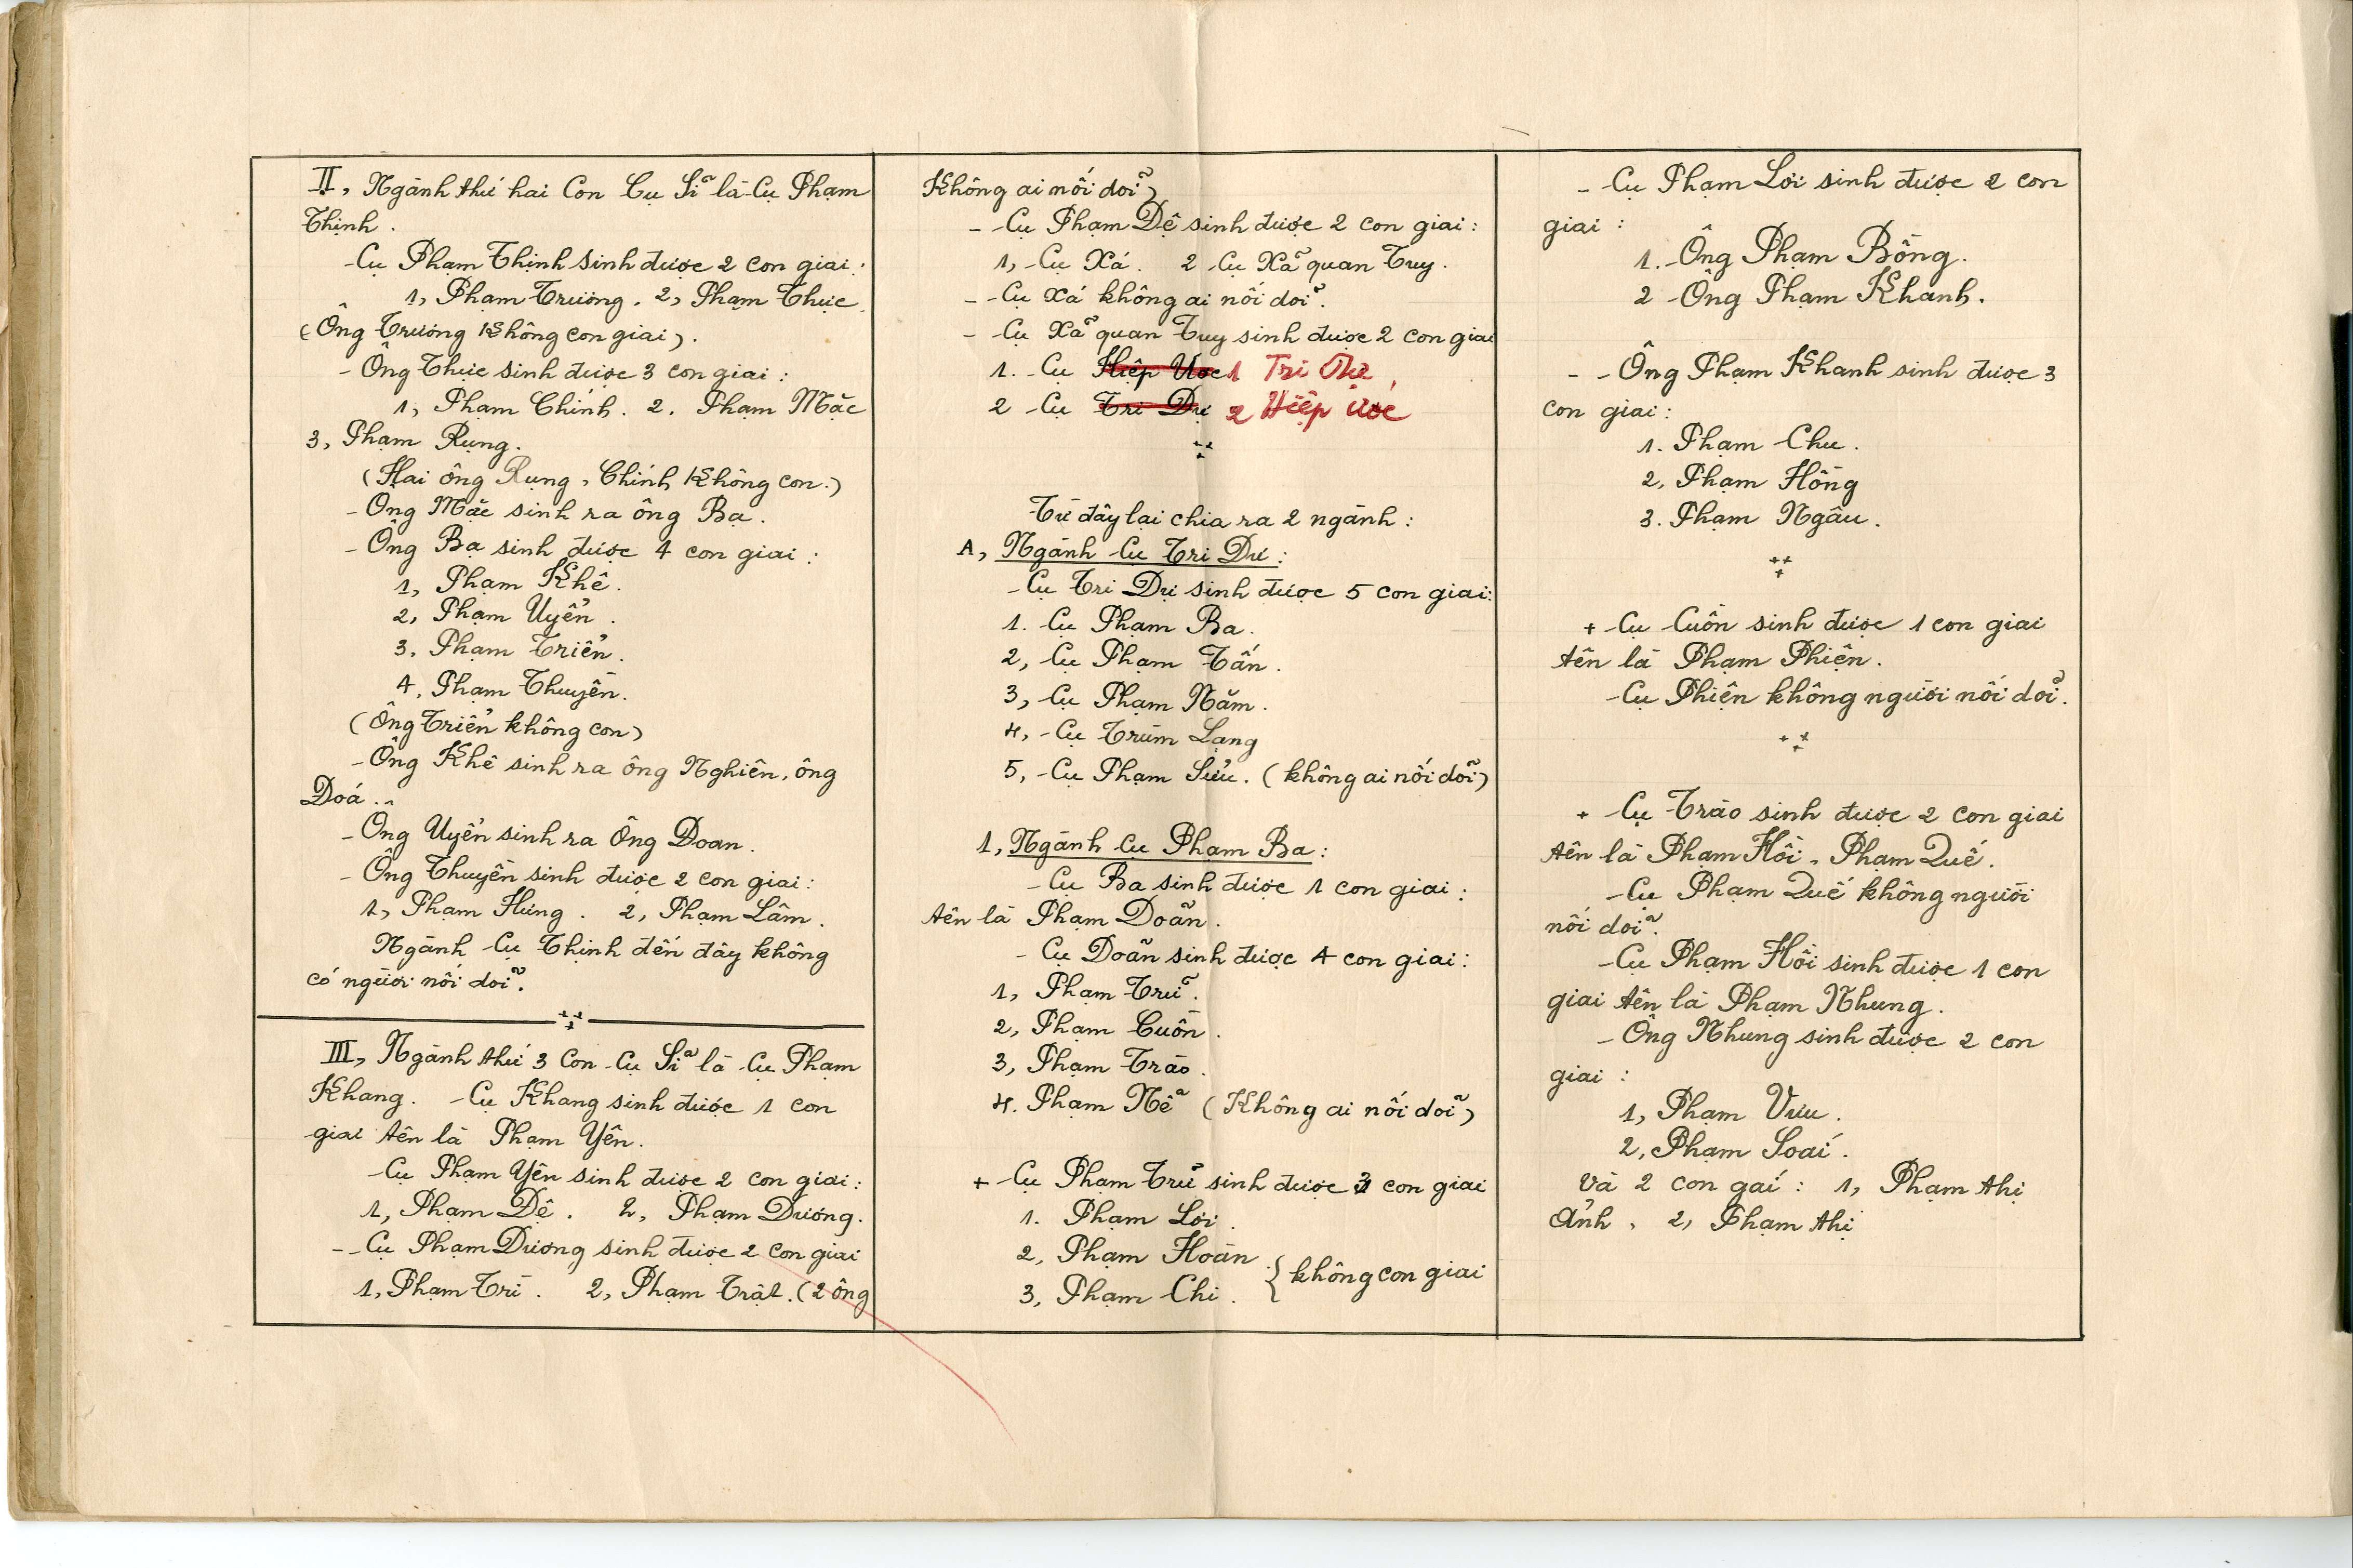 II, Ngành thứ hai Con Cụ Sĩ là Cụ Phạm
Thịnh.
Cụ Phạm Thịnh sinh được 2 con giai:
1, Phạm Trường. 2, Phạm Thực.
(Ông Trường không con giai).
- Ông Thực sinh được 3 con giai:
1, Phạm Chính. 2. Phạm Mặc
3, Phạm Rụng.
(Hai ông Rụng, Chính không con.)
- Ông Mặc sinh ra ông Bạ.
- Ông Bạ sinh được 4 con giai:
1, Phạm Khê.
2, Phạm Uyển.
3. Phạm Triển.
4, Phạm Thuyên.
(Ông Triển không con)
- Ông Khê sinh ra ông Nghiên, ông
Đoá.
- Ông Uyển sinh ra Ông Đoan.
- Ông Thuyên sinh được 2 con giai:
1, Phạm Hưng. 2, Phạm Lâm.
Ngành Cụ Thịnh đến đây không
có người nối dõi.
III, Ngành thứ 3 Con Cụ Sĩ là Cụ Phạm
Khang. Cụ Khang sinh được 1 con
giai tên là Phạm Yên.
Cụ Phạm Yên sinh được 2 con giai:
1, Phạm Dệ. 2, Phạm Dương.
- Cụ Phạm Dương sinh được 2 con giai
1, Phạm Trì. 2, Phạm Trật. (2 ông
Không ai nối dõi)
- Cụ Phạm Dệ sinh được 2 con giai:
1, Cụ Xá. 2 Cụ Xã quan Tuy.
- Cụ Xá không ai nối dõi.
- Cụ Xã quan Tuy sinh được 2 con giai
1. Cụ Hiệp Ước 1 Tri Dự
2 Cụ Tri Dự 2 Hiệp Ước
Từ đây lại chia ra 2 ngành:
A, Ngành Cụ Tri Dự:
Cụ Tri Dự sinh được 5 con giai:
1. Cụ Phạm Ba.
2, Cụ Phạm Tấn.
3, Cụ Phạm Năm.
4, Cụ Trùm Lạng
5, Cụ Phạm Sửu. (không ai nối dõi)
1, Ngành Cụ Phạm Ba:
- Cụ Ba sinh được 1 con giai:
tên là Phạm Doãn.
- Cụ Doãn sinh được 4 con giai:
1, Phạm Trữ.
2, Phạm Cuôn.
3, Phạm Trào.
4. Phạm Nễ (Không ai nối dõi)
+ Cụ Phạm Trữ sinh được 3 con giai
1. Phạm Lợi.
2, Phạm Hoàn
3, Phạm Chi. { không con giai
- Cụ Phạm Lợi sinh được 2 con
giai:
1. Ông Phạm Bồng.
2 Ông Phạm Khanh.
- - Ông Phạm Khanh sinh được 3
con giai:
1. Phạm Chu.
2, Phạm Hồng
3. Phạm Ngâu.
+ Cụ Cuôn sinh được 1 con giai
tên là Phạm Phiện.
Cụ Phiện không người nối dõi.
+ Cụ Trào sinh được 2 con giai
tên là Phạm Hồi, Phạm Quế.
Cụ Phạm Quế không người
nối dõi.
Cụ Phạm Hồi sinh được 1 con
giai tên là Phạm Nhung.
- Ông Nhung sinh được 2 con
giai:
1, Phạm Vưu.
2, Phạm Soái.
Và 2 con gái: 1, Phạm thị
Ảnh, 2, Phạm thị